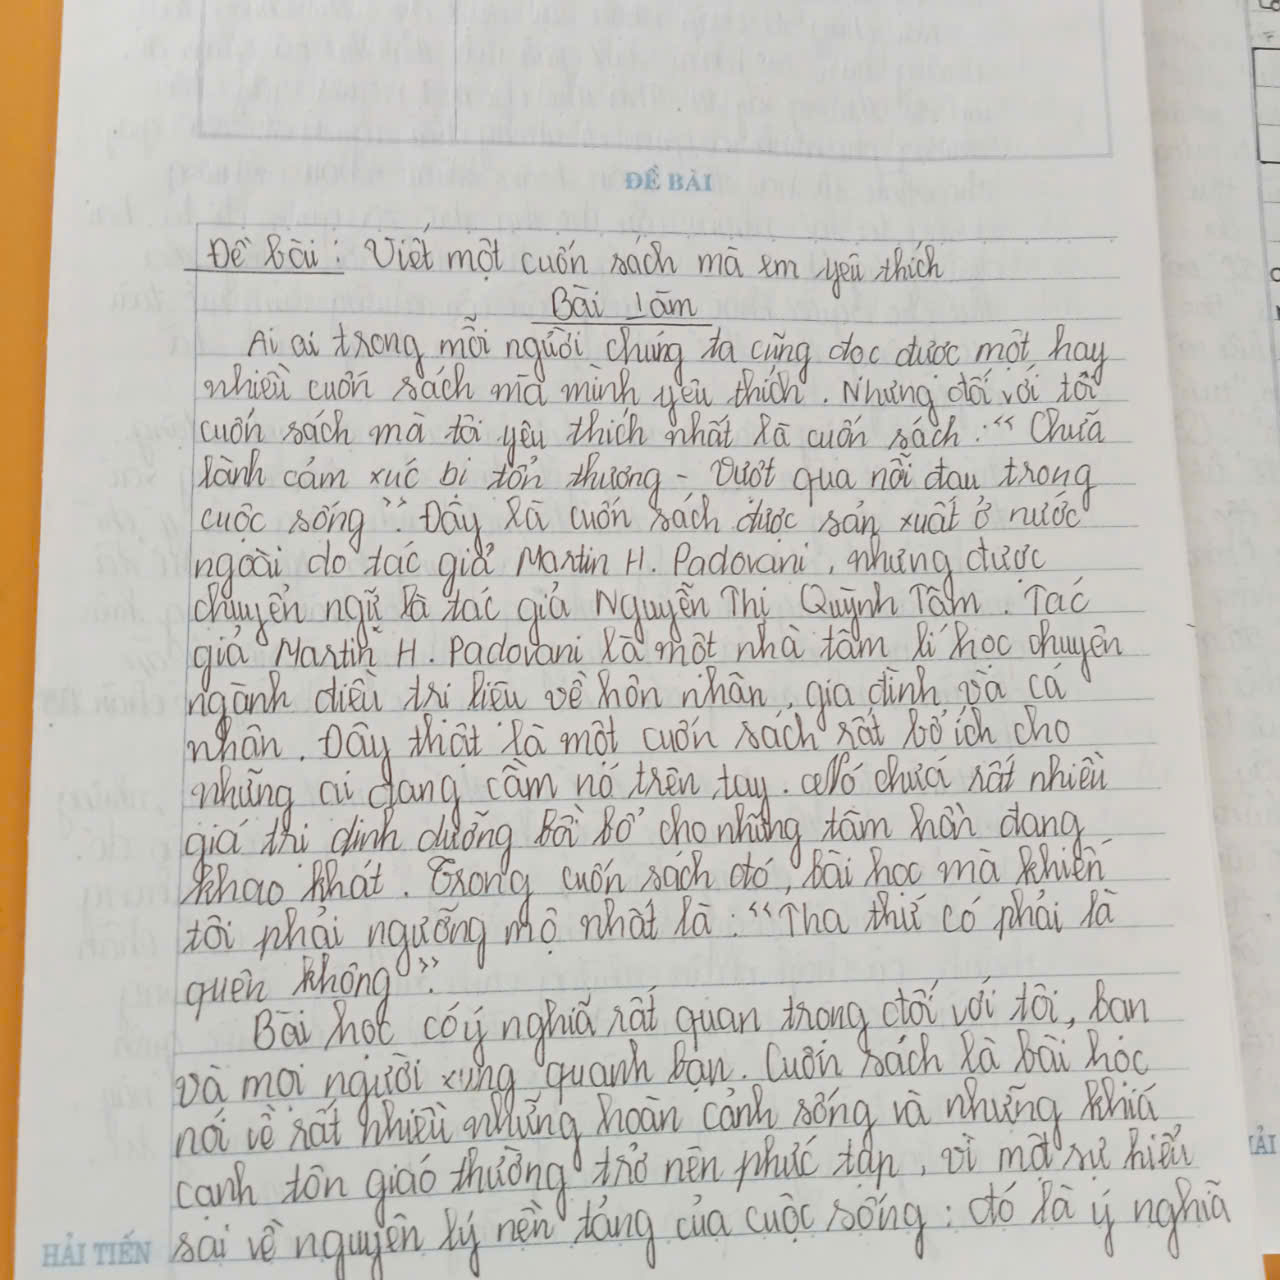 ĐỀ BÀI
Đề bài : Viết một cuốn sách mà em yêu thích
Bài làm
Ai ai trong mỗi người chúng ta cũng đọc được một hay
nhiều cuốn sách mà mình yêu thích. Nhưng đối với tôi
cuốn sách mà tôi yêu thích nhất là cuốn sách : “ Chữa
lành cảm xúc bị tổn thương - Vượt qua nỗi đau trong
cuộc sống ”. Đây là cuốn sách được sản xuất ở nước
ngoài do tác giả Martin H. Padovani , nhưng được
chuyển ngữ là tác giả Nguyễn Thị Quỳnh Tâm . Tác
giả Martin H . Padovani là một nhà tâm lí học chuyên
ngành điều trị liệu về hôn nhân , gia đình và cá
nhân . Đây thật là một cuốn sách rất bổ ích cho
những ai đang cầm nó trên tay . Nó chứa rất nhiều
giá trị dinh dưỡng bồi bổ cho những tâm hồn đang
khao khát . Trong cuốn sách đó , bài học mà khiến
tôi phải ngưỡng mộ nhất là : “ Tha thứ có phải là
quên không ”.
Bài học có ý nghĩa rất quan trọng đối với tôi , bạn
và mọi người xung quanh bạn . Cuốn sách là bài học
nói về rất nhiều những hoàn cảnh sống và những khía
cạnh tôn giáo thường trở nên phức tạp , vì một sự hiểu
sai về nguyên lý nền tảng của cuộc sống : đó là ý nghĩa
HẢI TIẾN